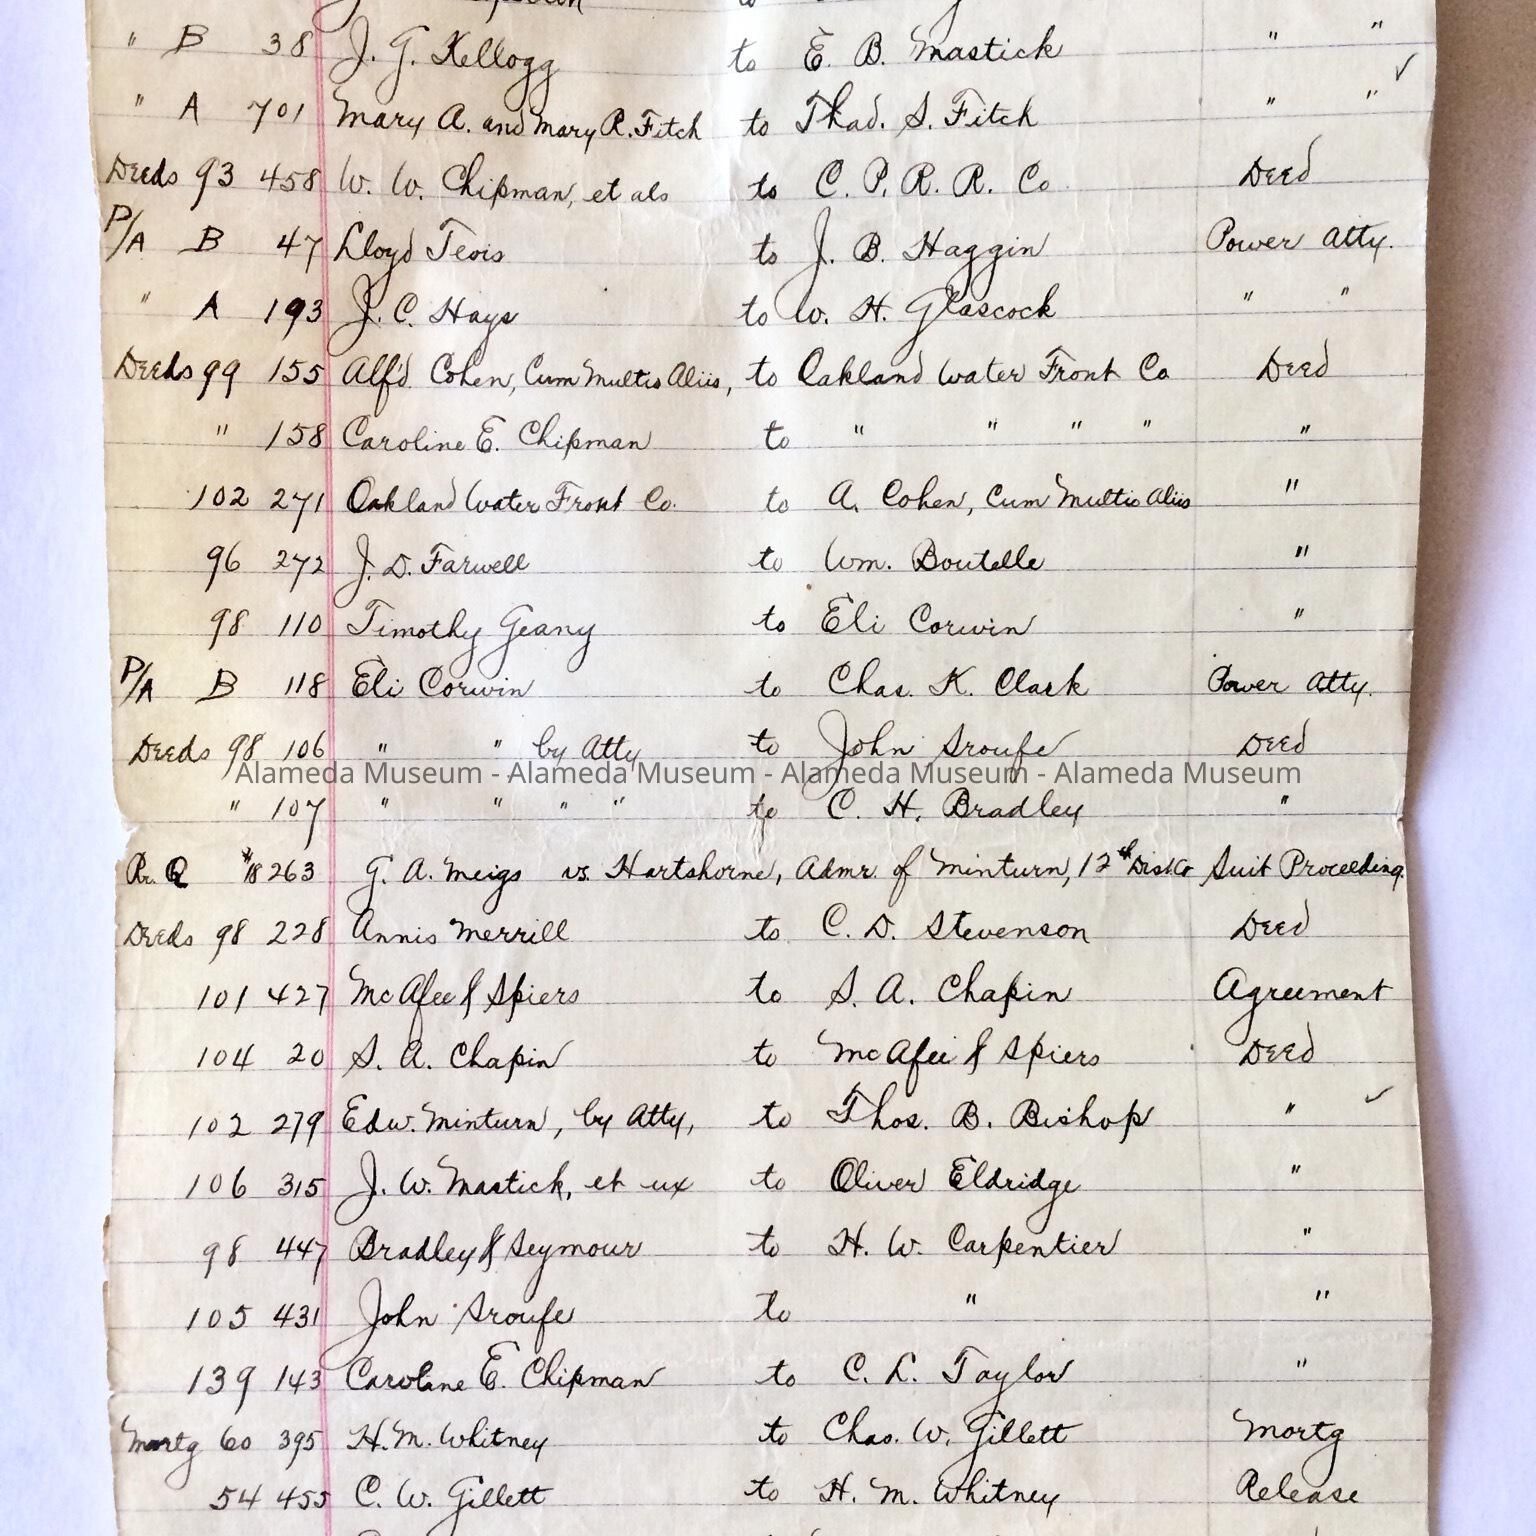 " B 38 J. G. Kellogg to E. B. Mastick " "
" A 701 Mary A. and Mary R. Fitch to Thad. S. Fitch " " ✓
Deeds 93 458 W. W. Chipman, et als to C. P. R. R. Co Deed
P/A B 47 Lloyd Tevis to J. B. Haggin Power Atty.
" A 193 J. C. Hays to W. H. Glascock " "
Deeds 99 155 Alf'd Cohen, Cum Multis Aliis, to Oakland Water Front Co Deed
" 158 Caroline E. Chipman to " " " " "
102 271 Oakland Water Front Co. to A. Cohen, Cum Multis Aliis "
96 272 J. D. Farwell to Wm. Boutelle "
98 110 Timothy Geany to Eli Corwin "
P/A B 118 Eli Corwin to Chas. K. Clark Power Atty.
Deeds 98 106 " " by Atty to John Sroufe Deed
Alameda Museum - Alameda Museum - Alameda Museum - Alameda Museum
" 107 " " " " to C. H. Bradley "
Pr. Q #18263 G. A. Meigs vs. Hartshorne, Admr. of Minturn, 12th Dist. Co Suit Proceeding.
Deeds 98 228 Annis Merrill to C. D. Stevenson Deed
101 427 McAfee & Spiers to S. A. Chapin Agreement
104 20 S. A. Chapin to McAfee & Spiers Deed
102 279 Edw. Minturn, by Atty, to Thos. B. Bishop " ✓
106 315 J. W. Mastick, et ux to Oliver Eldridge "
98 447 Bradley & Seymour to H. W. Carpentier "
105 431 John Sroufe to " "
139 143 Caroline E. Chipman to C. L. Taylor "
Mortg 60 395 H. M. Whitney to Chas. W. Gillett Mortg
54 455 C. W. Gillett to H. M. Whitney Release